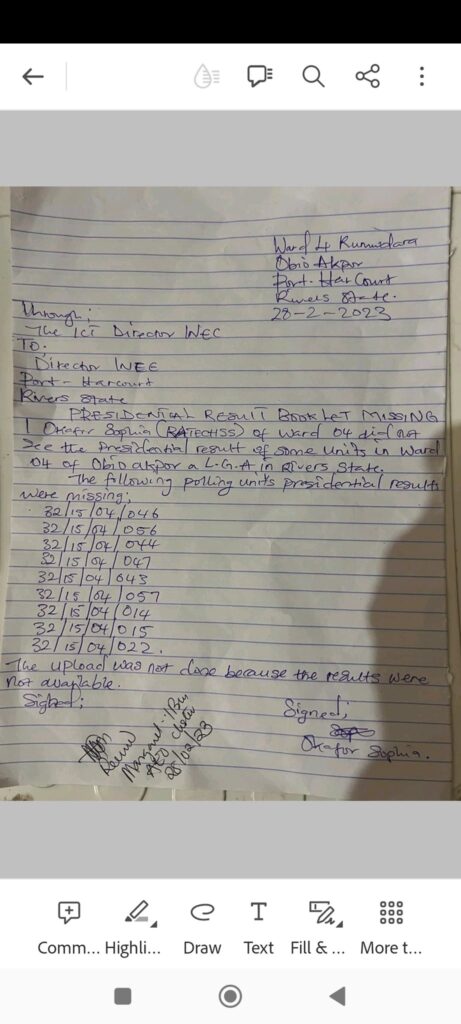 Ward 4 Rumuodara
Obio Akpor
Port-HarCourt
Rivers State.
28-2-2023
Through;
The ICT Director INEC
TO.
Director INEC
Port-Harcourt
Rivers State
PRESIDENTIAL RESULT BOOKLET MISSING
I Okafor Sophia (RATECHSS) of Ward 04 did not
see the presidential result of some units in Ward
04 of Obio akpor a L.G.A in Rivers State.
The following polling units presidential results
were missing;
32/15/04/046
32/15/04/056
32/15/04/044
32/15/04/047
32/15/04/043
32/15/04/057
32/15/04/014
32/15/04/015
32/15/04/022.
The upload was not done because the results were
not available.
Signed;
Signed;
Okafor Sophia.
Margaret
28/02/23
Comm... Highli... Draw Text Fill & ... More t...